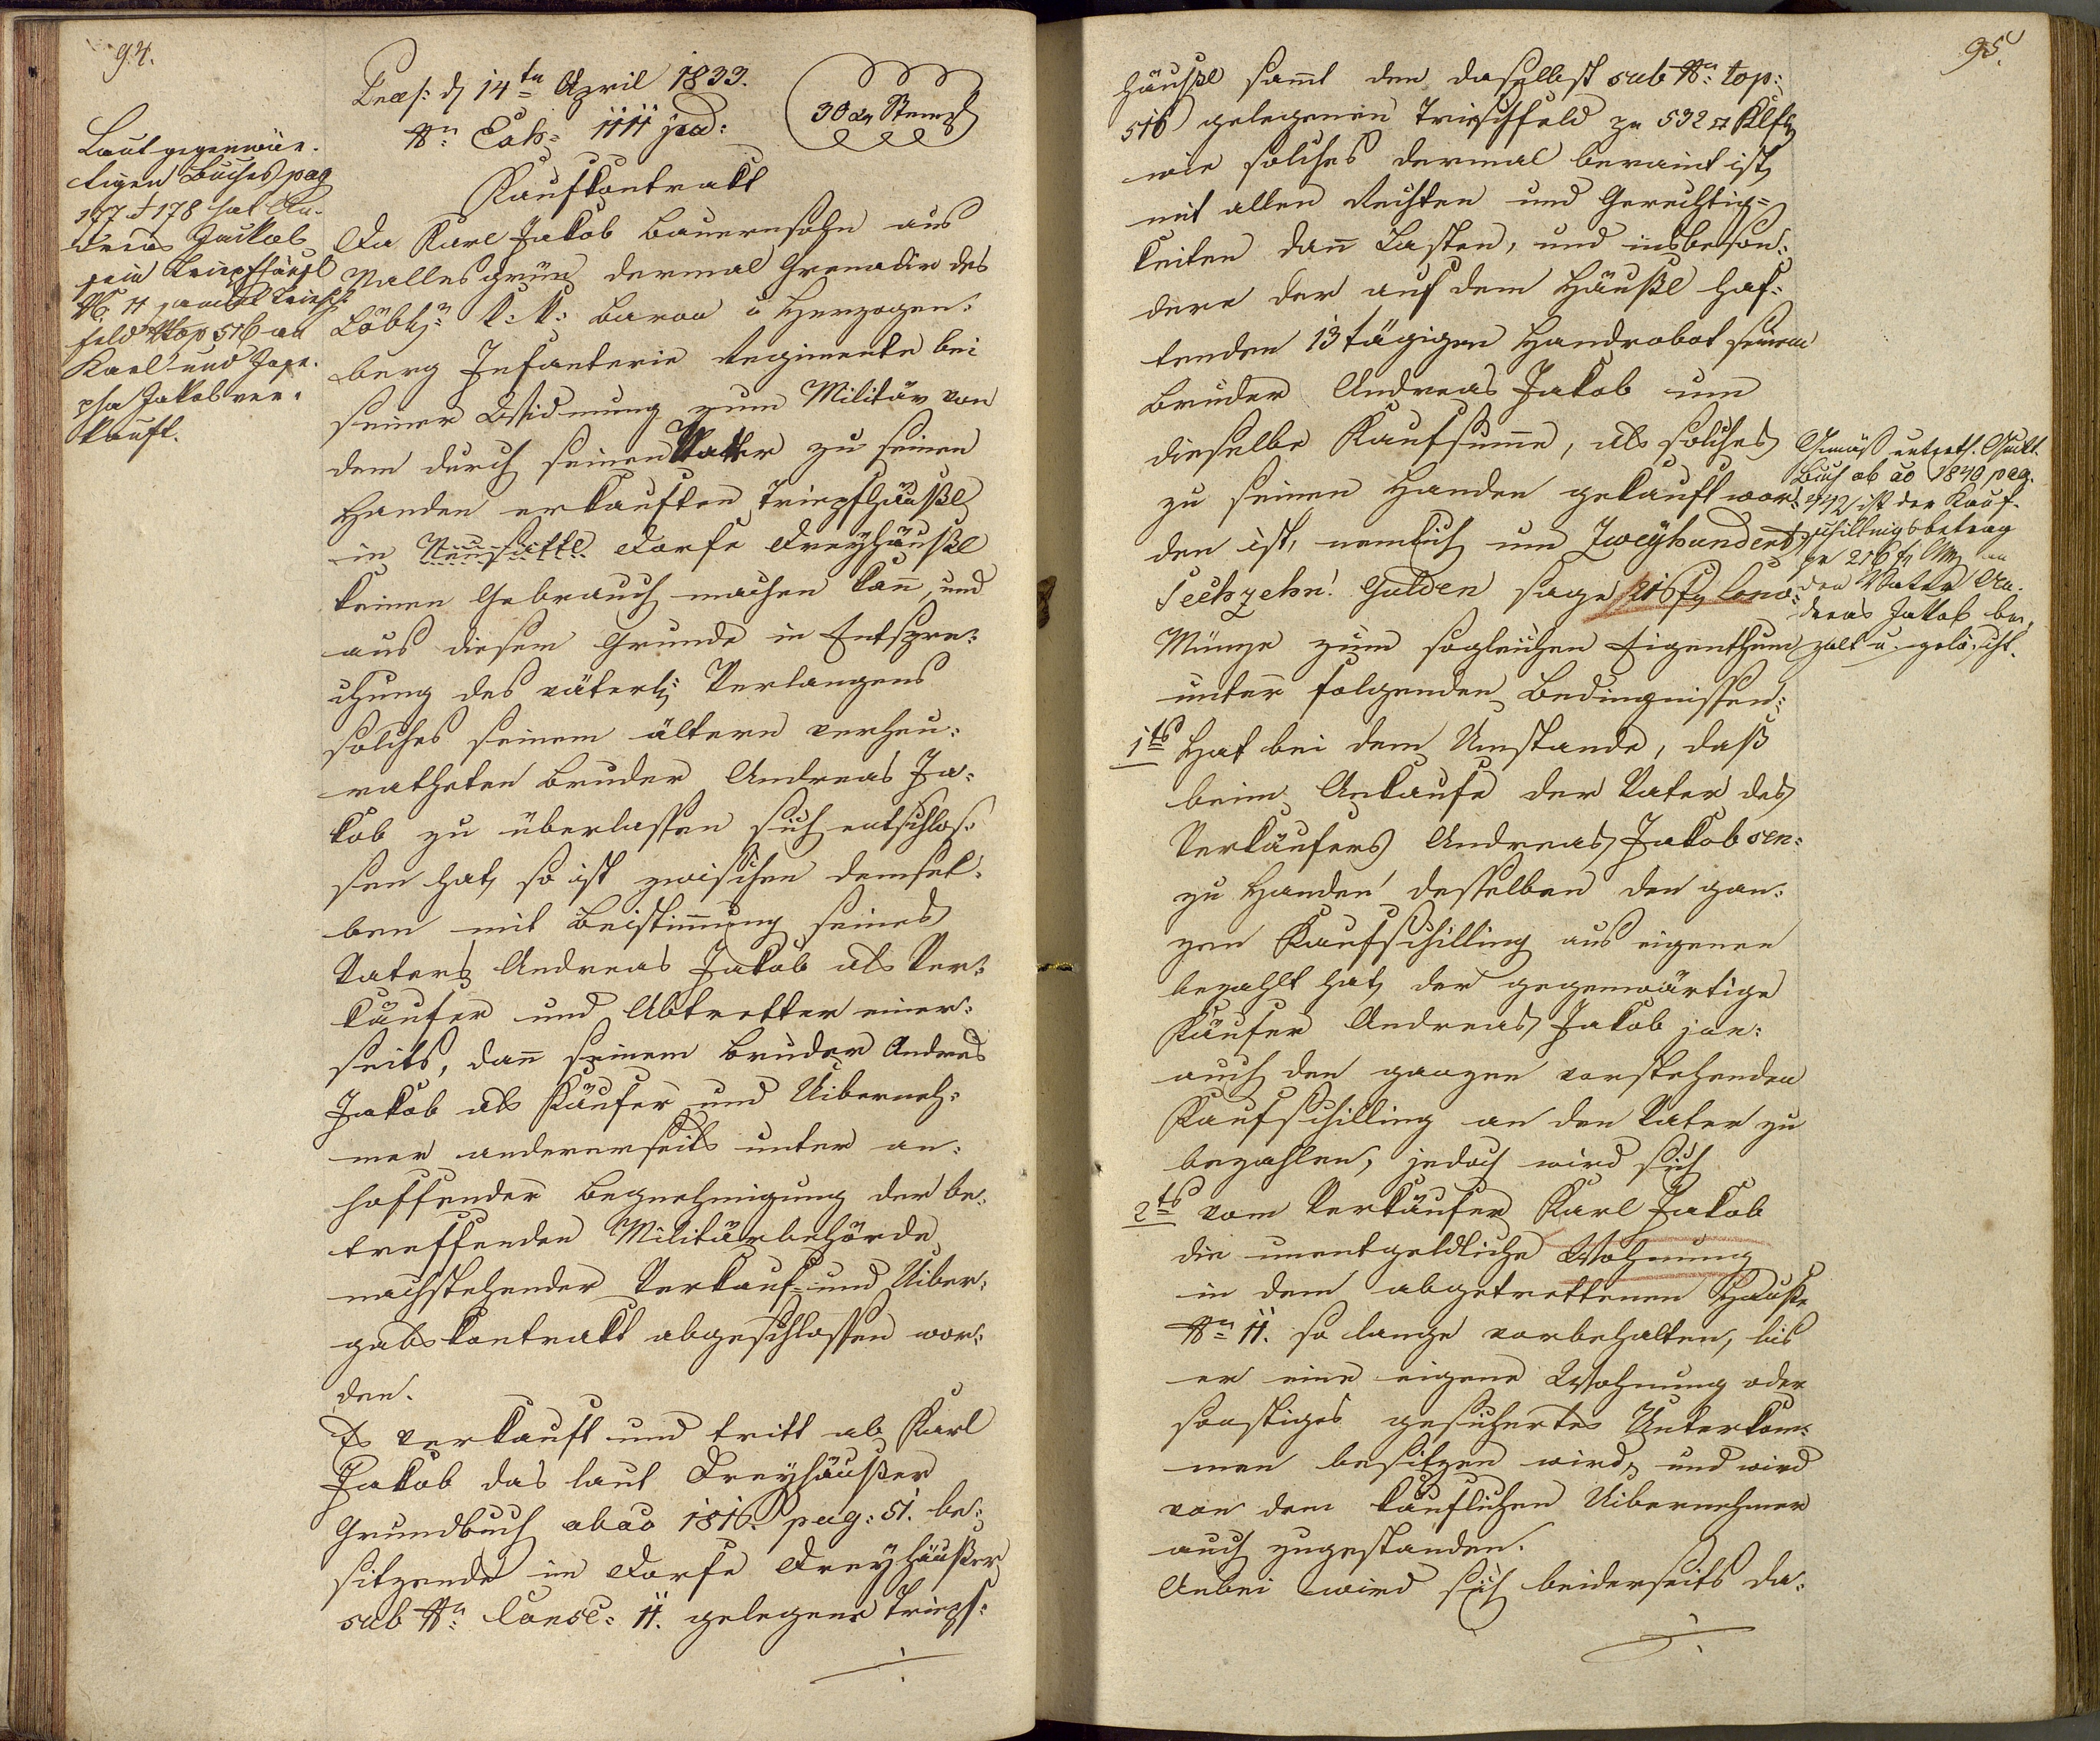 94.
Præs: d 14ten April 1833.
Nr. Exh= 1111 jud:
30 xr Stempl
Laut gegenwär-
tigen Buches pag
177 & 178 hat An-
dreas Jackob
sein Tripfhäusl
No. 11 sammt Triesch-
feld Ntop 516 an
Karl und Jose-
pha Jakob ver-
kauft.
Kaufkontrakt
Da Karl Jakob Bauernsohn aus
Nallesgrün dermal Grenadir des
Löbl: k: k: Baron v Herzogen-
berg Infanterie Regimente bei
seiner Widmung zum Militär von
dem durch seinen Vatter zu seinen
Handen erkauften Tripfhäußl
in Neusattl. Dorfe Dreyhäußl
keinen Gebrauch machen kann, und
aus diesem Grunde in Entspre-
chung des väterl: Verlangens
solches seinem ältern verheu-
ratheten Bruder Andreas Ja-
kob zu überlassen sich entschlos-
sen hat, so ist zwischen demsel-
ben mit Beistimmung seines
Vaters Andreas Jakob als Ver-
käufer und Abtretter einer-
seits, dann seinem Bruder Andreas
Jakob als Käufer und Uiberneh-
mer andererseits unter an-
hoffender Begnehmigung der be-
treffenden Militärbehörde
nachstehender Verkauf- und Uiber-
gabskontrakt abgeschlossen wor-
den.
Es verkauft und tritt ab Karl
Jakob das laut Dreyhäußer
Grundbuch ab ao 1816. pag: 51. be-
sitzende im Dorfe Dreyhäußer
sub Nr. Consc: 11. gelegene Tripf-
95.
häußl sammt den daselbst sub Nr: top:
516 gelegenen Trieschfeld zu 532 □ Klftr
wie solches dermal beraint ist,
mit allen Rechten und Gerechtig-
keiten dann Lasten, und insbeson-
dere der auf dem Häußl haf-
tenden 13 tägigen Handrobot seinem
Bruder Andreas Jakob um
dieselbe Kaufsumme, als solches
zu seinen Handen gekauft wor-
den ist, nemlich um Zweyhundert
Sechzehn! Gulden sage 216 fl Conv-
Münze zum sogleichen Eigenthum
unter folgenden Bedingnissen:
Gemäß unterth. Schuld.
Buch ab ao 1840 pag.
442 ist der Kauf-
schillingsbetrag
pr 216 fl CMz an
den Vater An-
dreas Jakob be-
zalt u. gelöscht.
1ts Hat bei dem Umstande, daß
beim Ankaufe der Vater des
Verkäufers Andreas Jakob sen:
zu Handen desselben den gan-
zen Kaufschilling aus eigenen
bezahlt hat, der gegenwärtige
Käufer Andreas Jakob jun:
auch den ganzen vorstehenden
Kaufschilling an den Vater zu
bezahlen, jedoch wird sich
2ts vom Verkäufer Karl Jakob
die unentgeldliche Wohnung
in dem abgetrettenen Hauße
Nr. 11. so lange vorbehalten, bis
er eine eigene Wohnung oder
sonstiges gesichertes Unterkom-
men besitzen wird, und wird
von dem käuflichen Uibernehmer
auch zugestanden.
Anbei wird sich beiderseits da-